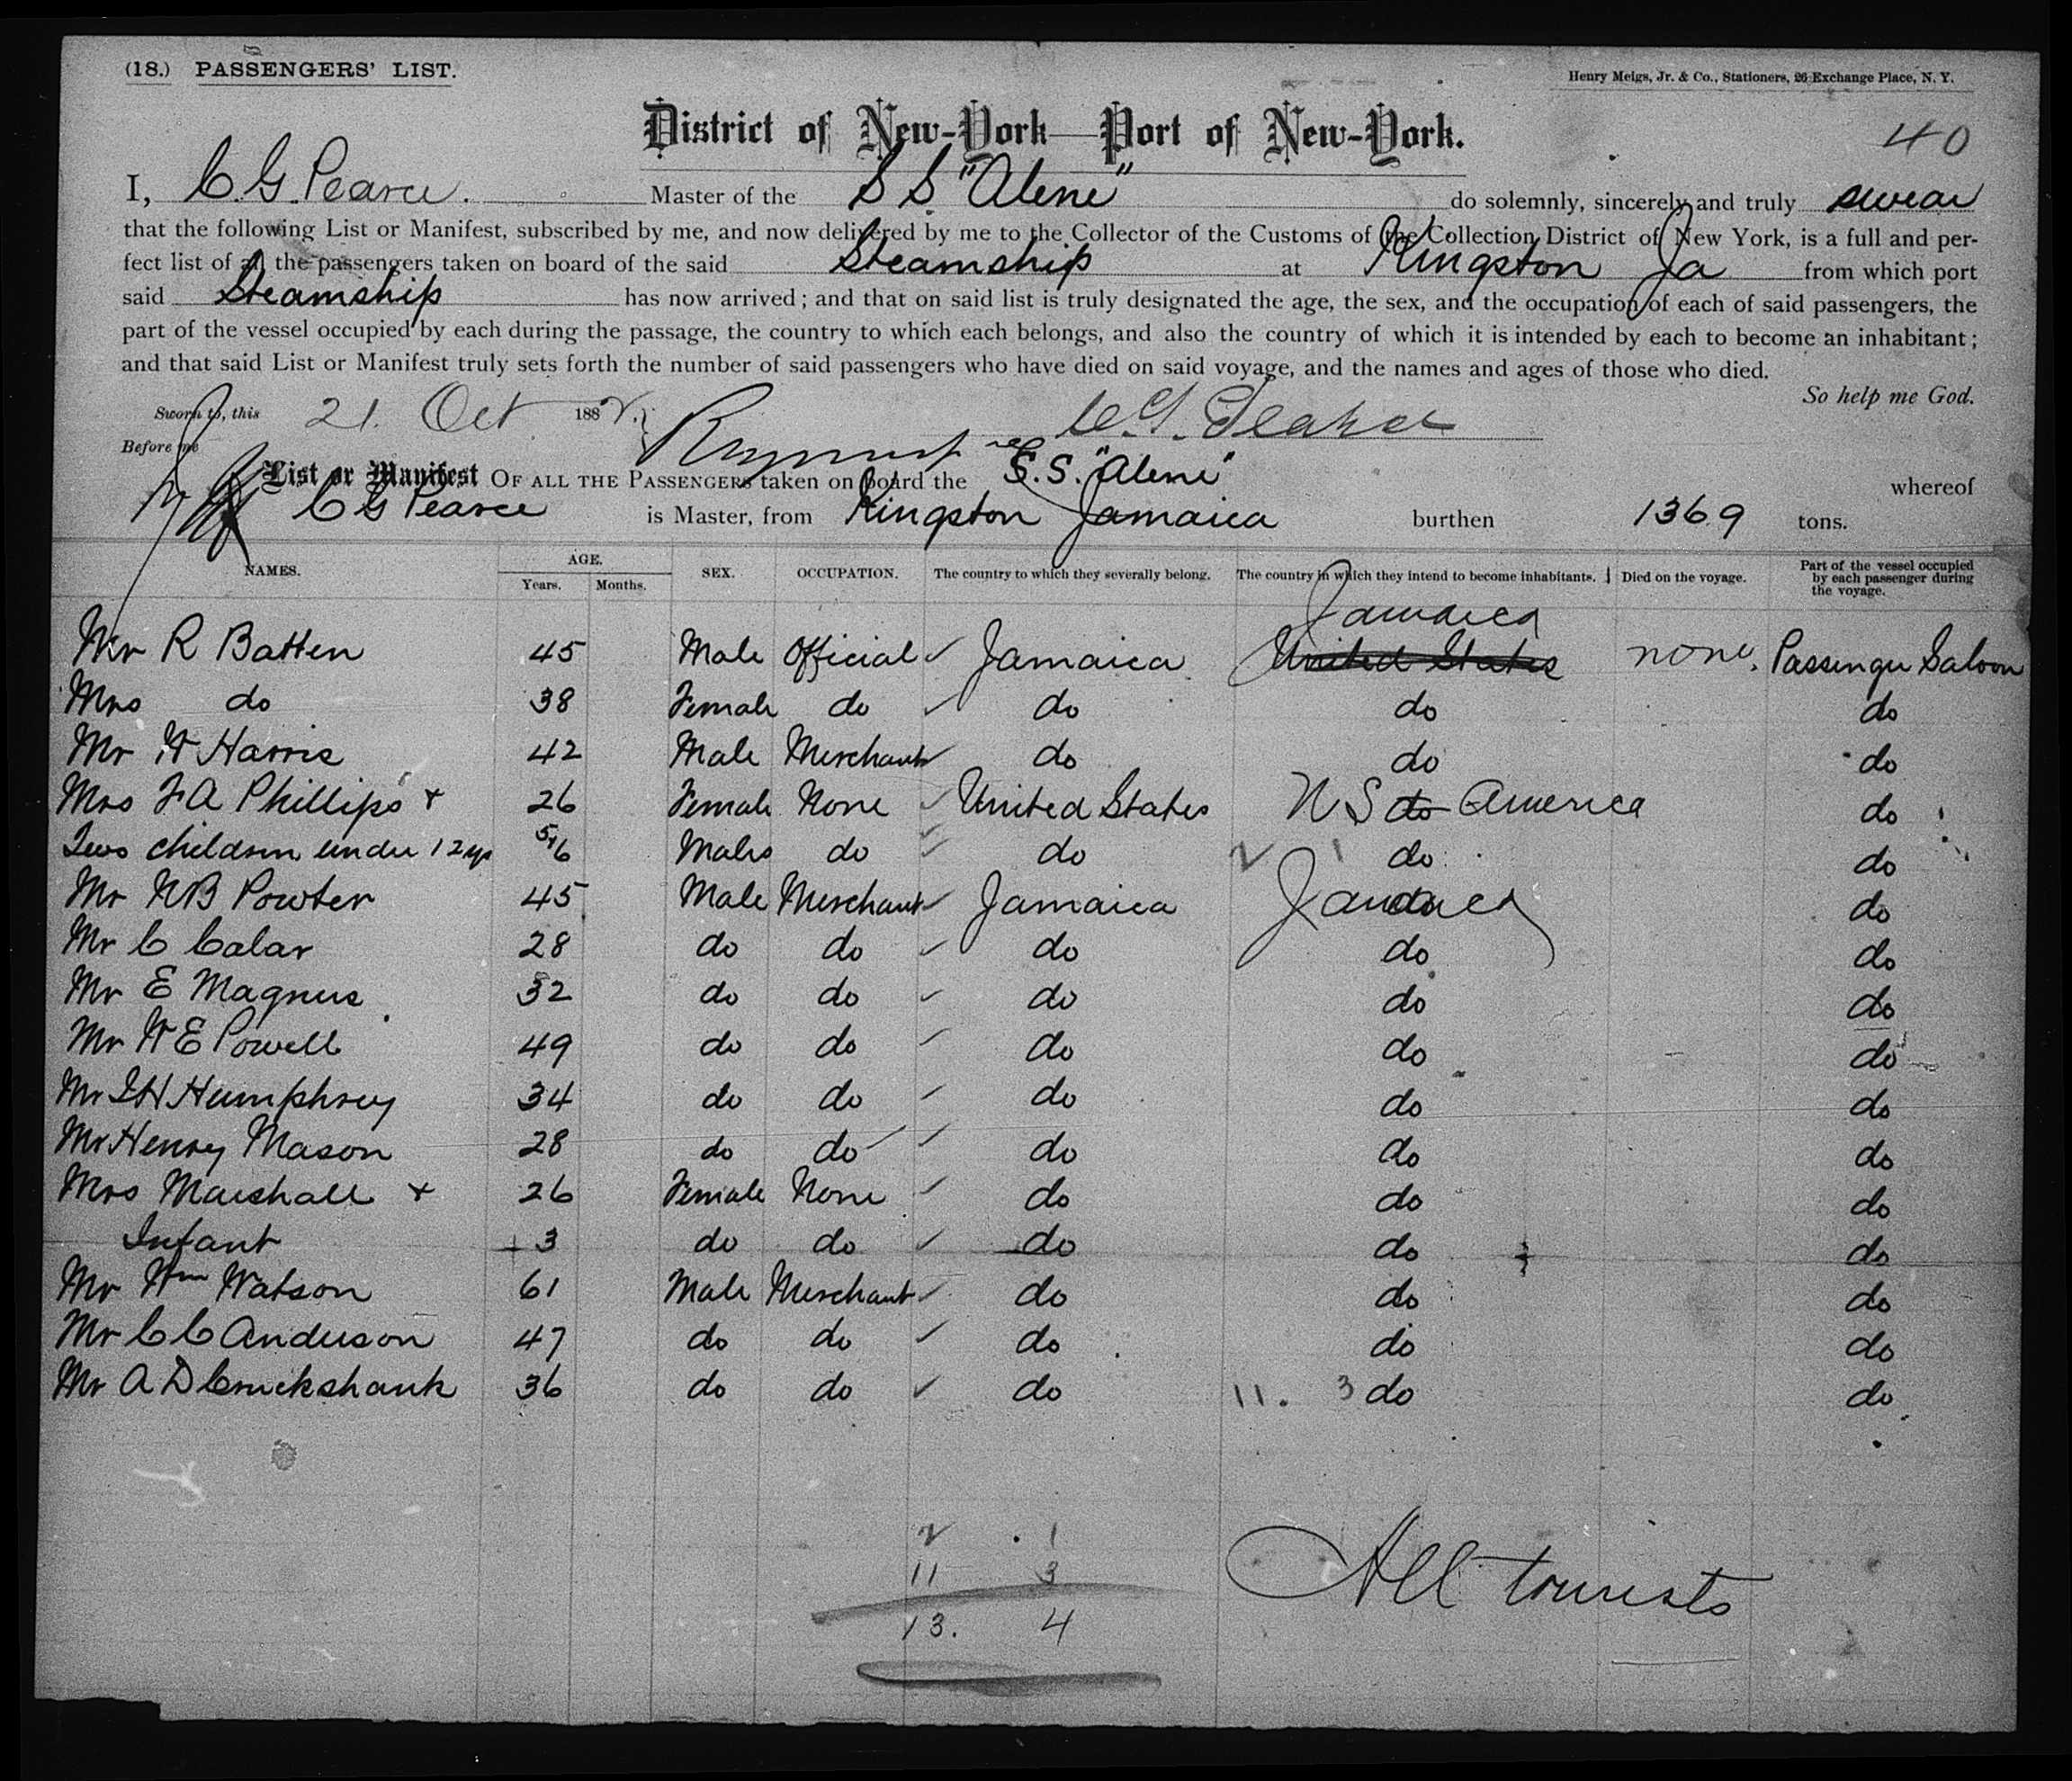 (18.) PASSENGERS' LIST.
Henry Meigs, Jr. & Co., Stationers, 26 Exchange Place, N. Y.
District of New-York—Port of New-York.
40
I, C. G. Pearce. Master of the S S. "Alene" do solemnly, sincerely and truly swear
that the following List or Manifest, subscribed by me, and now delivered by me to the Collector of the Customs of the Collection District of New York, is a full and per-
fect list of all the passengers taken on board of the said Steamship at Kingston Ja from which port
said Steamship has now arrived; and that on said list is truly designated the age, the sex, and the occupation of each of said passengers, the
part of the vessel occupied by each during the passage, the country to which each belongs, and also the country of which it is intended by each to become an inhabitant;
and that said List or Manifest truly sets forth the number of said passengers who have died on said voyage, and the names and ages of those who died.
So help me God.
Sworn to, this 21. Oct 1882.
Before me
List or Manifest OF ALL THE PASSENGERS taken on board the S. S. "Alene" whereof
C G Pearce is Master, from Kingston Jamaica burthen 1369 tons.
NAMES. AGE. Years. Months. SEX. OCCUPATION. The country to which they severally belong. The country in which they intend to become inhabitants. Died on the voyage. Part of the vessel occupied by each passenger during the voyage.
Jamaica
Mr R Batten 45 Male Official Jamaica United States none. Passenger Saloon
Mrs do 38 Female do do do do
Mr H Harris 42 Male Merchant do do do
Mrs F A Phillips + 26 Female None United States U S do America do
Two children under 12 yrs 5 + 6 Males do do 2 1 do do
Mr N B Powter 45 Male Merchant Jamaica Jamaica do
Mr C Calar 28 do do do do do
Mr E Magnus 32 do do do do do
Mr W E Powell 49 do do do do do
Mr I H Humphrey 34 do do do do do
Mr Henry Mason 28 do do do do do
Mrs Marshall + 26 Female None do do do
Infant 3 do do do do do
Mr Wm Watson 61 Male Merchant do do do
Mr C C Anderson 47 do do do do do
Mr A D Cruickshank 36 do do do 11. 3 do do
2 1
11 3
13. 4
All tourists